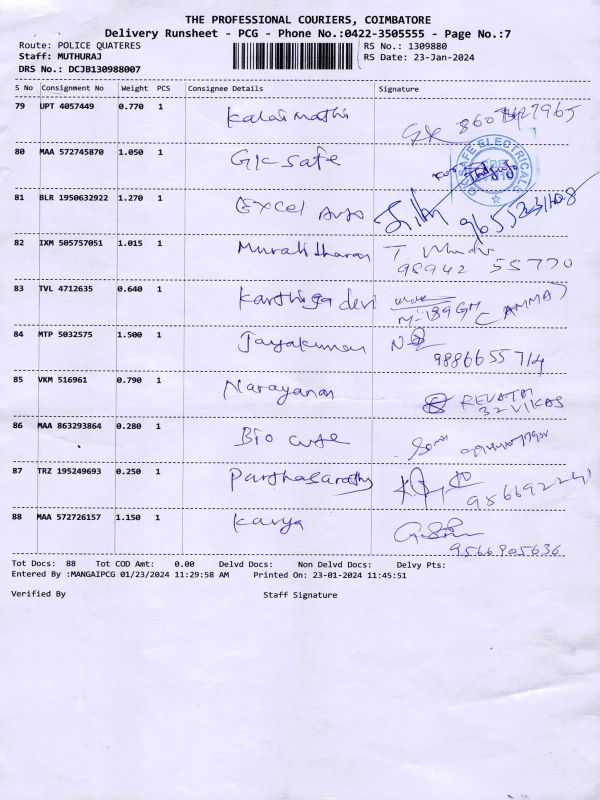 THE PROFESSIONAL COURIERS, COIMBATORE
Delivery Runsheet - PCG - Phone No.:0422-3505555 - Page No.:7
Route: POLICE QUATERES RS No.: 1309880
Staff: MUTHURAJ RS Date: 23-Jan-2024
DRS No.: DCJB130988007
S No Consignment No Weight PCS Consignee Details Signature
79 UPT 4057449 0.770 1 Kalaimathi
80 MAA 572745870 1.050 1 GK Safe
SAFE ELECTRICALS
81 BLR 1950632922 1.270 1 Excel Auto
82 IXM 505757051 1.015 1 Muralitharan
98942 55770
83 TVL 4712635 0.640 1 Karthiga devi
(AMMA)
84 MTP 5032575 1.500 1 Jayakumar
9886655714
85 VKM 516961 0.790 1 Narayanan REVATHI
32 VIKAS
86 MAA 863293864 0.280 1 Bio cure
87 TRZ 195249693 0.250 1 Parthasarathy
88 MAA 572726157 1.150 1 Kavya
9566905636
Tot Docs: 88 Tot COD Amt: 0.00 Delvd Docs: Non Delvd Docs: Delvy Pts:
Entered By :MANGAIPCG 01/23/2024 11:29:58 AM Printed On: 23-01-2024 11:45:51
Verified By Staff Signature